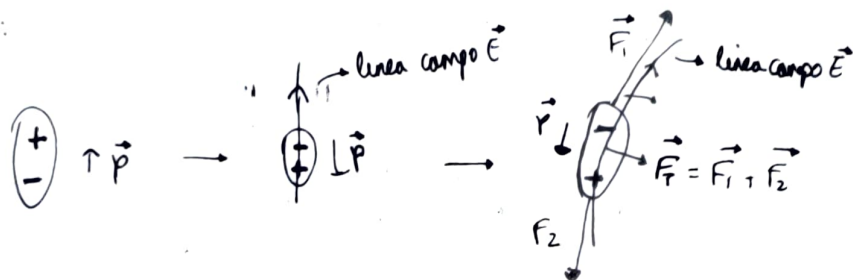 +
−
↑ p⃗
→
linea campo E⃗
−
+
↓ p⃗
→
F⃗₁
linea campo E⃗
p⃗ ↓
−
+
F⃗_T = F⃗₁ + F⃗₂
F₂